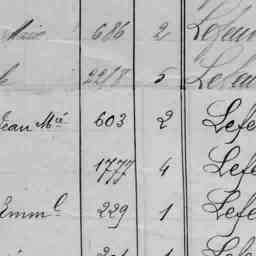 686 2 Lefeu
2218 5 Lefeu
Jean Mie 603 2 Lefe
1777 4 Lefe
Emml 229 1 Lefe
1 Lefe